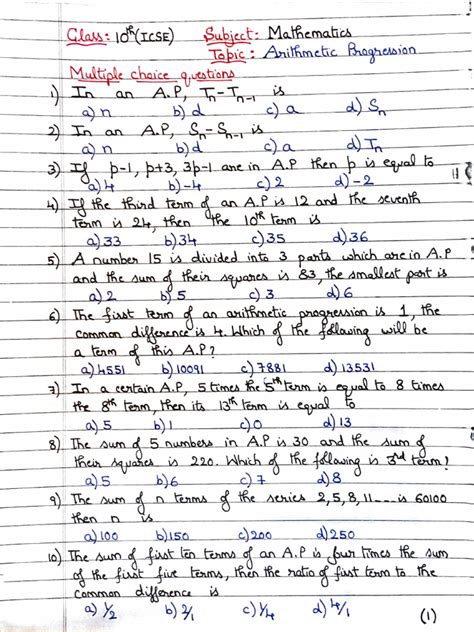 Class: 10th (ICSE) Subject: Mathematics
Topic: Arithmetic Progression
Multiple choice questions
1) In an A.P, Tn-Tn-1 is
a) n b) d c) a d) Sn
2) In an A.P, Sn-Sn-1 is
a) n b) d c) a d) Tn
3) If p-1, p+3, 3p-1 are in A.P then p is equal to
a) 4 b) -4 c) 2 d) -2
4) If the third term of an A.P is 12 and the seventh
term is 24, then the 10th term is
a) 33 b) 34 c) 35 d) 36
5) A number 15 is divided into 3 parts which are in A.P
and the sum of their squares is 83, the smallest part is
a) 2 b) 5 c) 3 d) 6
6) The first term of an arithmetic progression is 1, the
common difference is 4. Which of the following will be
a term of this A.P?
a) 4551 b) 10091 c) 7881 d) 13531
7) In a certain A.P, 5 times the 5th term is equal to 8 times
the 8th term, then its 13th term is equal to
a) 5 b) 1 c) 0 d) 13
8) The sum of 5 numbers in A.P is 30 and the sum of
their squares is 220. Which of the following is 3rd term?
a) 5 b) 6 c) 7 d) 8
9) The sum of n terms of the series 2, 5, 8, 11--- is 60100
then n is
a) 100 b) 150 c) 200 d) 250
10) The sum of first ten terms of an A.P is four times the sum
of the first five terms, then the ratio of first term to the
common difference is
a) 1/2 b) 2/1 c) 1/4 d) 4/1
(1)